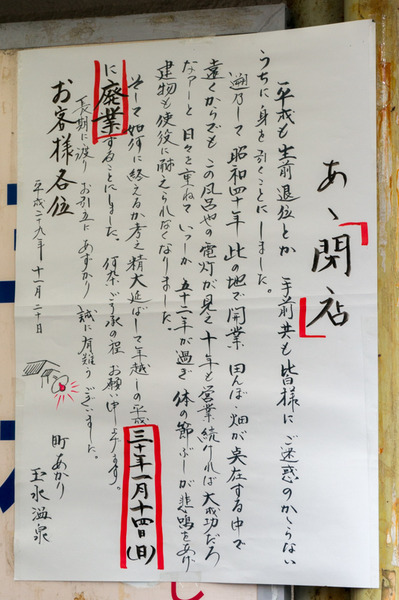 あゝ「閉店」
平成も生前退位とか 手前共も皆様にご迷惑のかゝらない
うちに身を引くことにしました。
遡乃して昭和四十年 此の地で開業 田んぼ・畑が点在する中で
遠くからでもこの風呂やの電灯が見え 十年と営業続ければ大成功だろ
なァーと日々を重ねて いつしか 五十二年が過ぎ 体の節ぶしが悲鳴をあげ
建物も使役に耐えられなくなりました。
そして如何に終えるか考え精大延ばして年越しの平成三十年一月十四日(日)
に廃業することにしました。何卒ご了承の程 お願い申し上げます。
長期に渡りお引立にあずかり 誠に有難うございました。
お客様各位
平成二十九年 十一月二十日
町あかり
玉水温泉